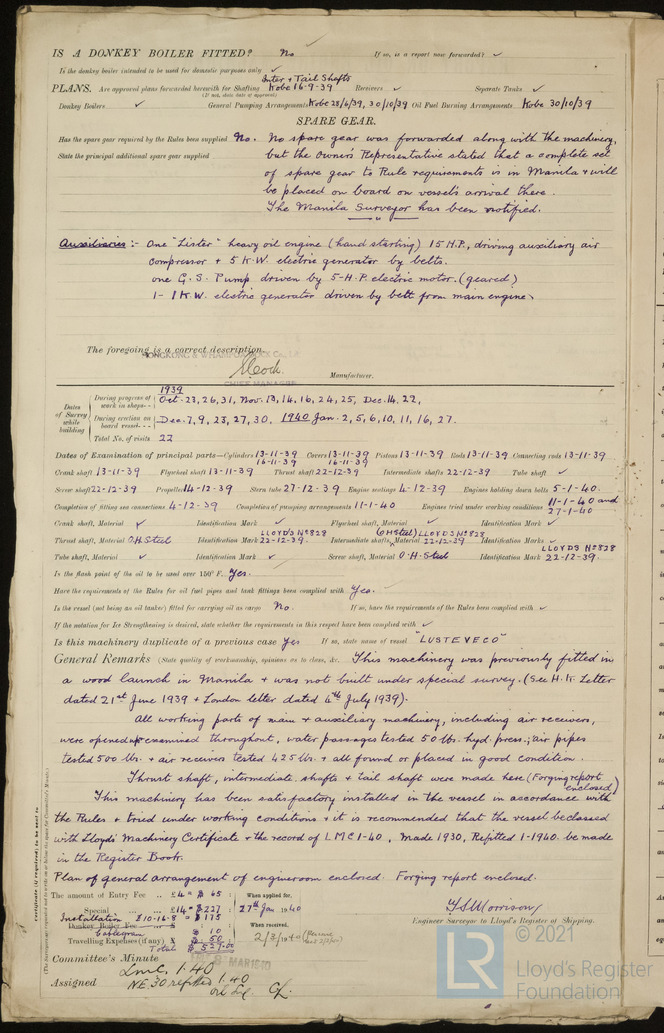 IS A DONKEY BOILER FITTED? No If so, is a report now forwarded? ✓
Is the donkey boiler intended to be used for domestic purposes only ✓
Inter & Tail Shafts
PLANS. Are approved plans forwarded herewith for Shafting Kobe 16-9-39 Receivers ✓ Separate Tanks ✓
(If not, state date of approval)
Donkey Boilers ✓ General Pumping Arrangements Kobe 28/6/39, 30/10/39 Oil Fuel Burning Arrangements Kobe 30/10/39
SPARE GEAR.
Has the spare gear required by the Rules been supplied No. No spare gear was forwarded along with the machinery,
State the principal additional spare gear supplied but the Owner's Representative stated that a complete set
of spare gear to Rule requirements is in Manila & will
be placed on board on vessel's arrival there.
The Manila Surveyor has been notified.
Auxiliaries:- One "Lister" heavy oil engine (hand starting) 15 H.P., driving auxiliary air
compressor & 5 K.W. electric generator by belts.
one G.S. Pump driven by 5-H.P. electric motor. (geared)
1- 1 K.W. electric generator driven by belt from main engine.
The foregoing is a correct description,
HONGKONG & WHAMPOA DOCK Co., Ld.
Manufacturer.
CHIEF MANAGER
Dates of Survey while building
1939
During progress of work in shops-- Oct. 23, 26, 31, Nov. 13, 14, 16, 24, 25, Dec. 14, 22,
During erection on board vessel--- Dec. 7, 9, 23, 27, 30, 1940 Jan. 2, 5, 6, 10, 11, 16, 27.
Total No. of visits 22
Dates of Examination of principal parts—Cylinders 13-11-39 Covers 13-11-39 Pistons 13-11-39 Rods 13-11-39 Connecting rods 13-11-39
16-11-39 16-11-39
Crank shaft 13-11-39 Flywheel shaft 13-11-39 Thrust shaft 22-12-39 Intermediate shafts 22-12-39 Tube shaft ✓
Screw shaft 22-12-39 Propeller 14-12-39 Stern tube 27-12-39 Engine seatings 4-12-39 Engines holding down bolts 5-1-40.
Completion of fitting sea connections 4-12-39 Completion of pumping arrangements 11-1-40 Engines tried under working conditions 11-1-40 and 27-1-40
Crank shaft, Material ✓ Identification Mark ✓ Flywheel shaft, Material ✓ Identification Mark ✓
Thrust shaft, Material O.H Steel Identification Mark LLOYD'S No 828 22-12-39. Intermediate shafts, Material (OH Steel) LLOYD'S No 828 22-12-39 Identification Marks ✓
Tube shaft, Material ✓ Identification Mark ✓ Screw shaft, Material O.H. Steel Identification Mark LLOYDS No 828 22-12-39.
Is the flash point of the oil to be used over 150° F. Yes.
Have the requirements of the Rules for oil fuel pipes and tank fittings been complied with Yes.
Is the vessel (not being an oil tanker) fitted for carrying oil as cargo No. If so, have the requirements of the Rules been complied with ✓
If the notation for Ice Strengthening is desired, state whether the requirements in this respect have been complied with ✓
Is this machinery duplicate of a previous case Yes If so, state name of vessel "LUSTEVECO"
General Remarks (State quality of workmanship, opinions as to class, &c. This machinery was previously fitted in
a wood launch in Manila & was not built under special survey. (See H.K. Letter
dated 21st June 1939 & London letter dated 4th July 1939).
All working parts of main & auxiliary machinery, including air receivers,
were opened up examined throughout, water passages tested 50 lbs. hyd. press.; air pipes
tested 500 lbs. & air receivers tested 425 lbs. & all found or placed in good condition.
Thrust shaft, intermediate shafts & tail shaft were made here (Forging report enclosed)
This machinery has been satisfactory installed in the vessel in accordance with
the Rules & tried under working conditions & it is recommended that the vessel be classed
with Lloyd's Machinery Certificate & the record of LMC 1-40, Made 1930, Refitted 1-1940. be made
in the Register Book.
Plan of general arrangement of engineroom enclosed. Forging report enclosed.
The amount of Entry Fee .. £4 = $ 65 : When applied for,
Special ... £14 = $ 227 : 27th Jan 1940
Installation £10-16-8 = $ 175
Donkey Boiler Fee ... £
Cablegram $ 10 When received,
Travelling Expenses (if any) £ $ 50 2/3/1940
Total $ 527.00
Engineer Surveyor to Lloyd's Register of Shipping.
Committee's Minute
Assigned LMC 1.40
NE. 30 refitted 1.40
Oil Eng CL.
© 2021
LR
Lloyd's Register
Foundation